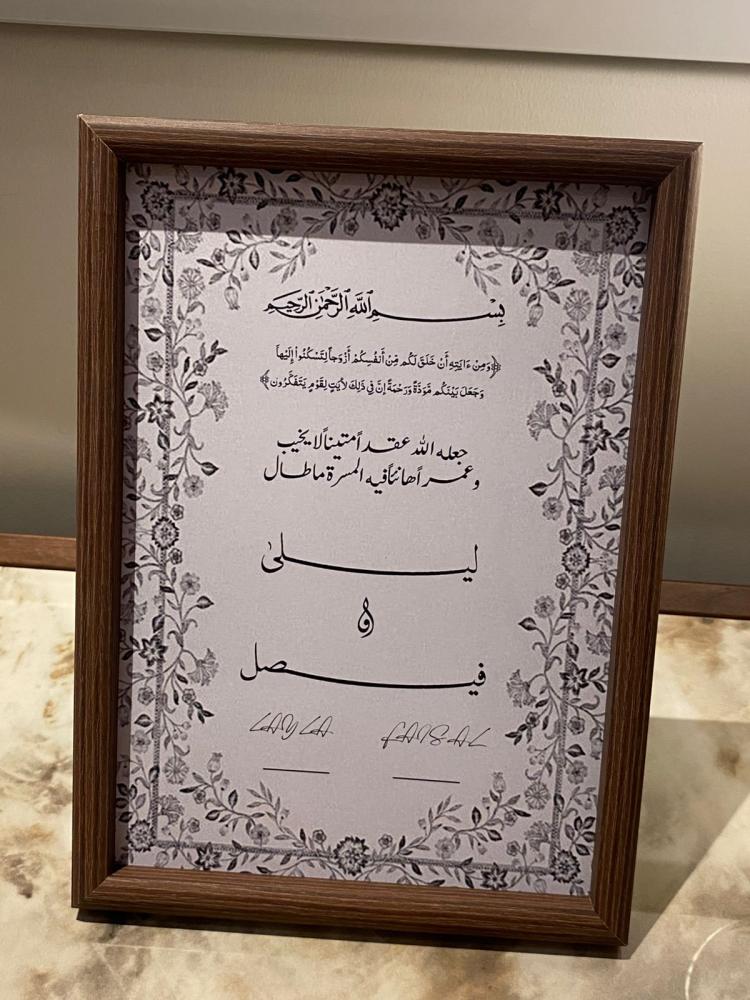 بِسْمِ اللَّهِ الرَّحْمَٰنِ الرَّحِيمِ
﴿وَمِنْ ءَايَٰتِهِۦٓ أَنْ خَلَقَ لَكُم مِّنْ أَنفُسِكُمْ أَزْوَٰجاً لِّتَسْكُنُوٓاْ إِلَيْهَا
وَجَعَلَ بَيْنَكُم مَّوَدَّةً وَرَحْمَةً إِنَّ فِي ذَٰلِكَ لَأٓيَٰتٍ لِّقَوْمٍ يَتَفَكَّرُونَ﴾
جعله الله عقداً متيناً لا يخيب
وعمراً هانئاً فيه المسرة ما طال
ليلى
و
فيصل
LAYLA FAISAL